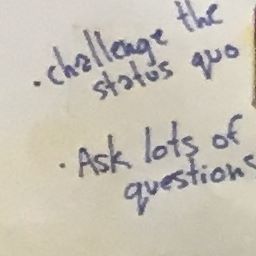 · challenge the
status quo
· Ask lots of
questions